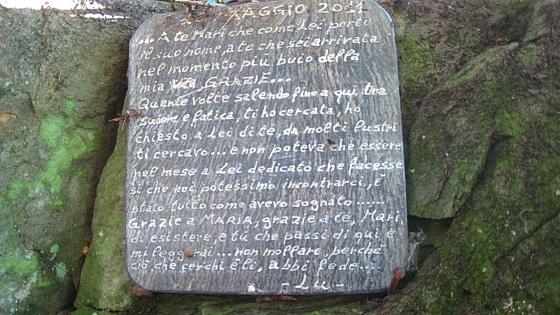 MAGGIO 2011
... A te Mari che come Lei porti
il suo nome, a te che sei arrivata
nel momento più buio della
mia vita GRAZIE...
Quante volte salendo fino a qui tra
sudore e fatica, ti ho cercata, ho
chiesto a Lei di te, da molti lustri
ti cercavo... e non poteva che essere
nel mese a Lei dedicato che facesse
si che noi potessimo incontrarci, è
stato tutto come avevo sognato......
Grazie a MARIA, grazie a te, Mari
di esistere, e tu che passi di qui e
mi leggerai... non mollare, perché
ciò che cerchi è lì, abbi fede....
- Lu -